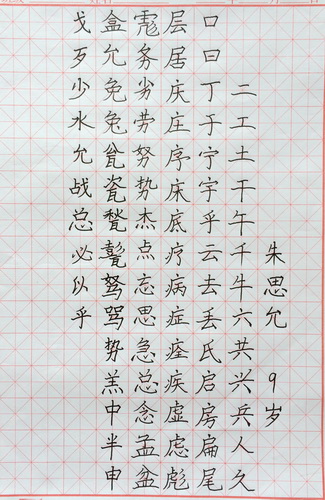 朱思允 9岁
二工土干午千牛六共兴兵人久
口曰丁于宁宇乎云去丢氏启房扁尾
层居庆庄序床底疗病症痊疾虚虑彪
务劣劳努势杰点忘思急总念孟盆
盒允免兔瓮瓷甃甏驽驾势羔中半申
戈歹少水允战总必以乎